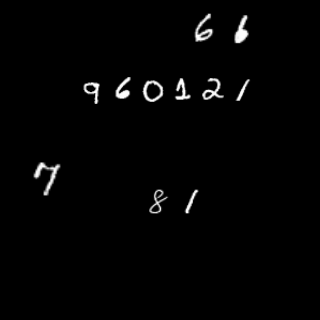 66
960121
7
81